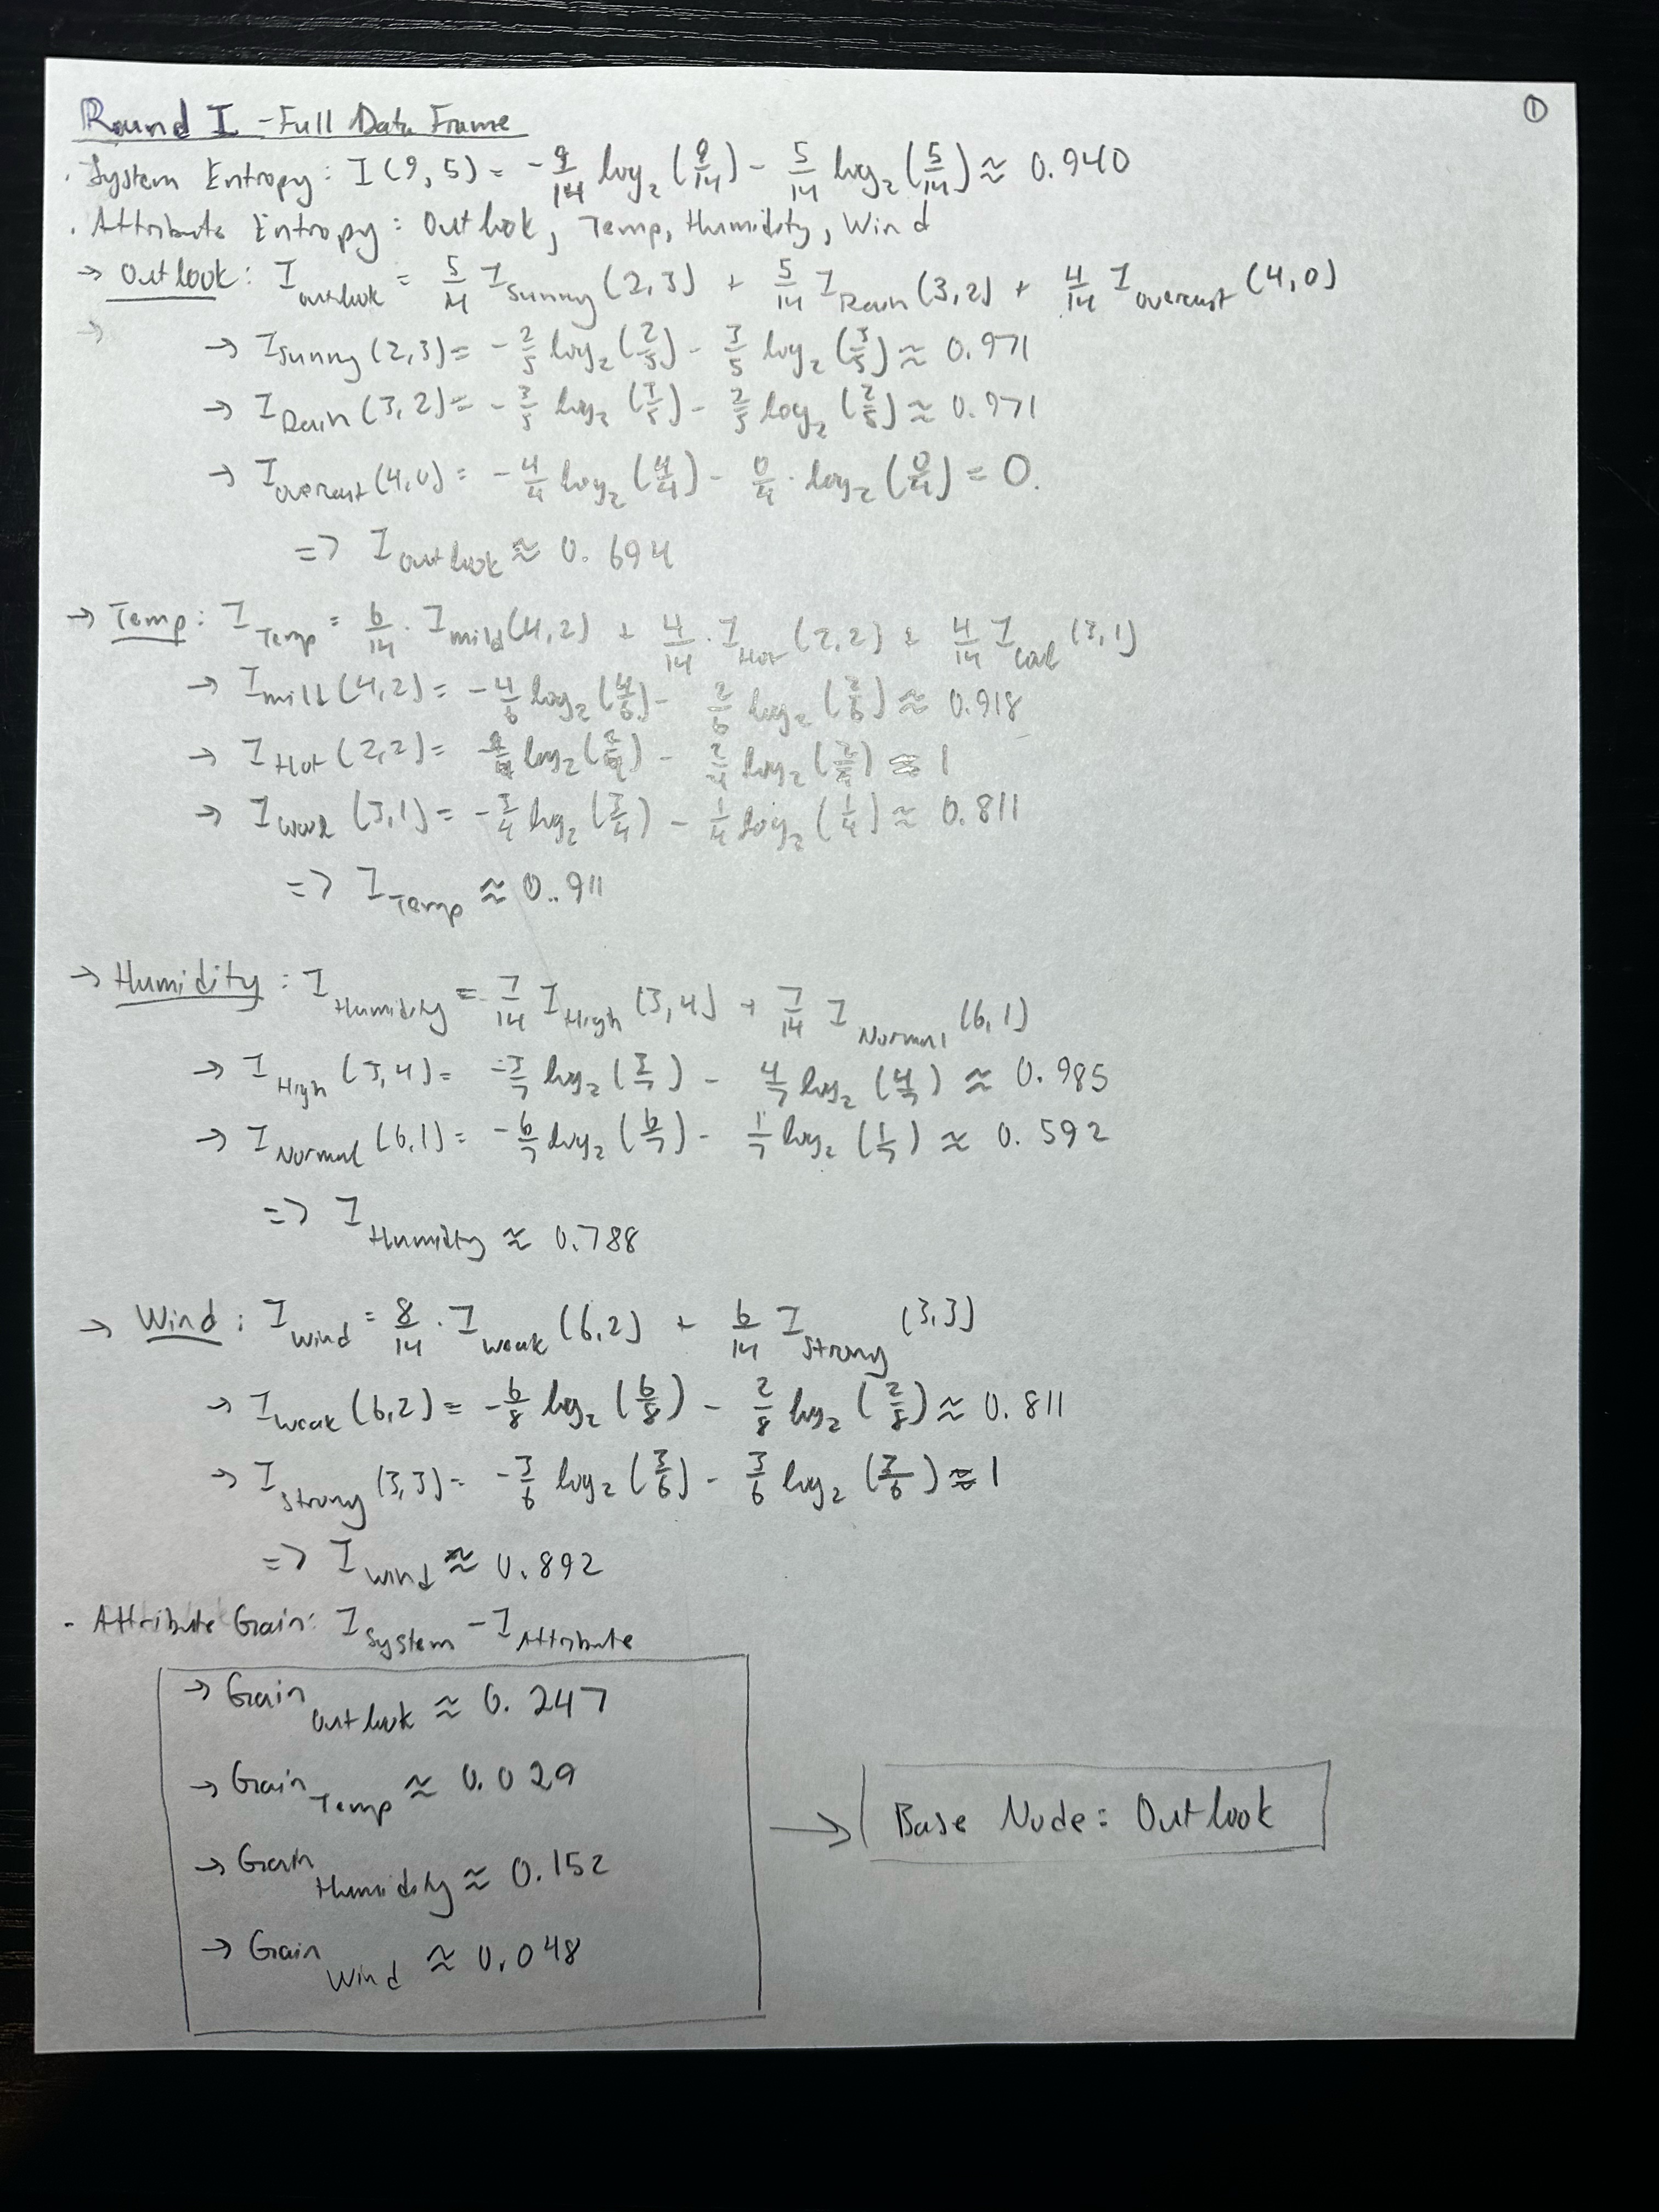 ①
Round I - Full Data Frame
· System Entropy: I(9,5) = -9/14 log₂(9/14) - 5/14 log₂(5/14) ≈ 0.940
· Attribute Entropy: Outlook, Temp, Humidity, Wind
→ Outlook: I_outlook = 5/14 I_Sunny(2,3) + 5/14 I_Rain(3,2) + 4/14 I_overcast(4,0)
→
→ I_Sunny(2,3) = -2/5 log₂(2/5) - 3/5 log₂(3/5) ≈ 0.971
→ I_Rain(3,2) = -3/5 log₂(3/5) - 2/5 log₂(2/5) ≈ 0.971
→ I_overcast(4,0) = -4/4 log₂(4/4) - 0/4 · log₂(0/4) = 0.
=> I_Outlook ≈ 0.694
→ Temp: I_Temp = 6/14 · I_mild(4,2) + 4/14 · I_Hot(2,2) + 4/14 I_Cool(3,1)
→ I_mild(4,2) = -4/6 log₂(4/6) - 2/6 log₂(2/6) ≈ 0.918
→ I_Hot(2,2) = -2/4 log₂(2/4) - 2/4 log₂(2/4) = 1
→ I_Cool(3,1) = -3/4 log₂(3/4) - 1/4 log₂(1/4) ≈ 0.811
=> I_Temp ≈ 0.911
→ Humidity: I_Humidity = 7/14 I_High(3,4) + 7/14 I_Normal(6,1)
→ I_High(3,4) = -3/7 log₂(3/7) - 4/7 log₂(4/7) ≈ 0.985
→ I_Normal(6,1) = -6/7 log₂(6/7) - 1/7 log₂(1/7) ≈ 0.592
=> I_Humidity ≈ 0.788
→ Wind: I_Wind = 8/14 · I_weak(6,2) + 6/14 I_Strong(3,3)
→ I_weak(6,2) = -6/8 log₂(6/8) - 2/8 log₂(2/8) ≈ 0.811
→ I_Strong(3,3) = -3/6 log₂(3/6) - 3/6 log₂(3/6) = 1
=> I_Wind ≈ 0.892
- Attribute Gain: I_System - I_Attribute
→ Gain_Outlook ≈ 0.247
→ Gain_Temp ≈ 0.029
→ Base Node: Outlook
→ Gain_Humidity ≈ 0.152
→ Gain_Wind ≈ 0.048